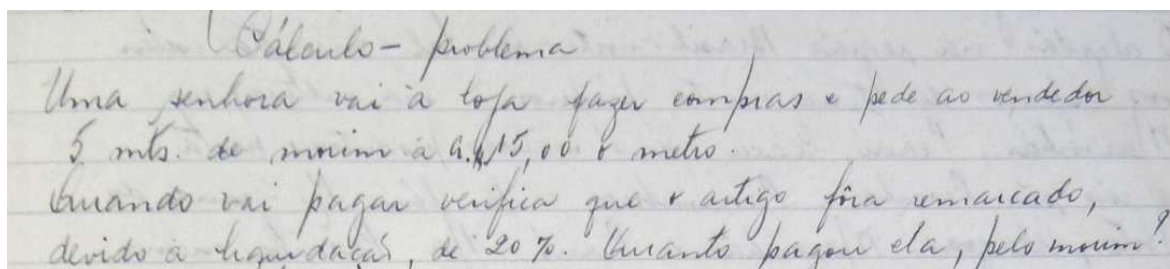 Cálculo - problema
Uma senhora vai à loja fazer compras e pede ao vendedor
5 mts. de morim à Cr$ 15,00 o metro.
Quando vai pagar verifica que o artigo fôra remarcado,
devido à liquidação, de 20%. Quanto pagou ela, pelo morim?